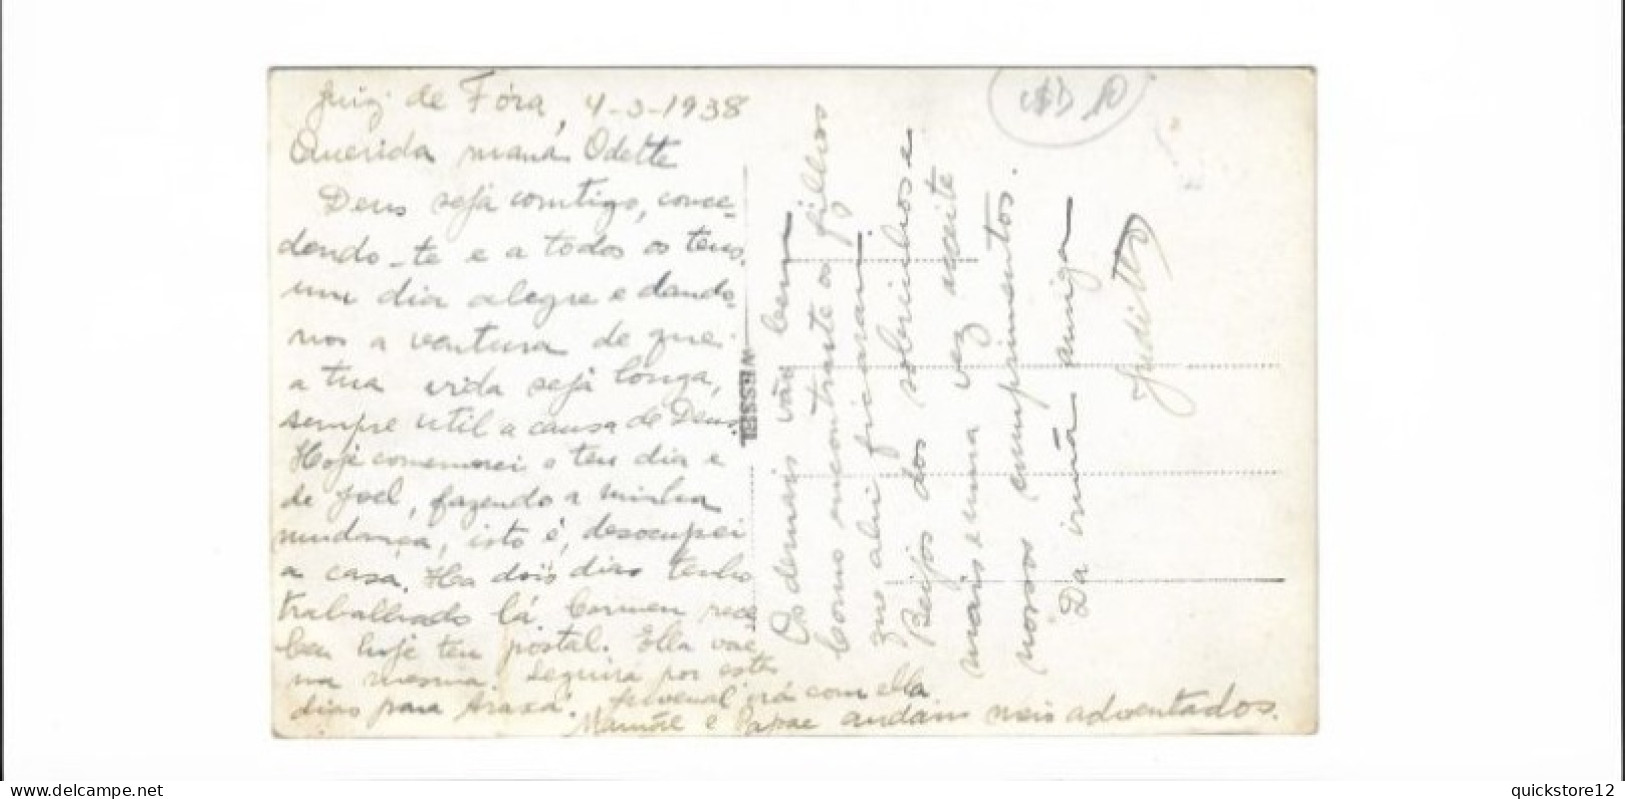 Juiz de Fóra, 4-3-1938
Querida maná Odette
Deus seja comtigo, conce-
dendo-te e a todos os teus,
um dia alegre e dando-
nos a ventura de que
a tua vida seja longa,
sempre util a causa de Deus.
Hoje comemorei o teu dia e
de Joel, fazendo a minha
mudança, isto é, desocupei
a casa. Ha dois dias tenho
trabalhado lá. Carmen rece
beu hoje teu postal. Ella vae
na mesma. Seguirá por estes
dias para Araxá. Juvenal irá com ella.
Mamãe e Papae andam meio adoentados.
Os demais vão bem
Como encontraste os filhos
que ahi ficaram.
Beijos dos sobrinhos e
mais e uma vez acceite
nossos cumprimentos.
Da irmã amiga
Judith
WESSEL
10
quickstore12.delcampe.net
quickstore12